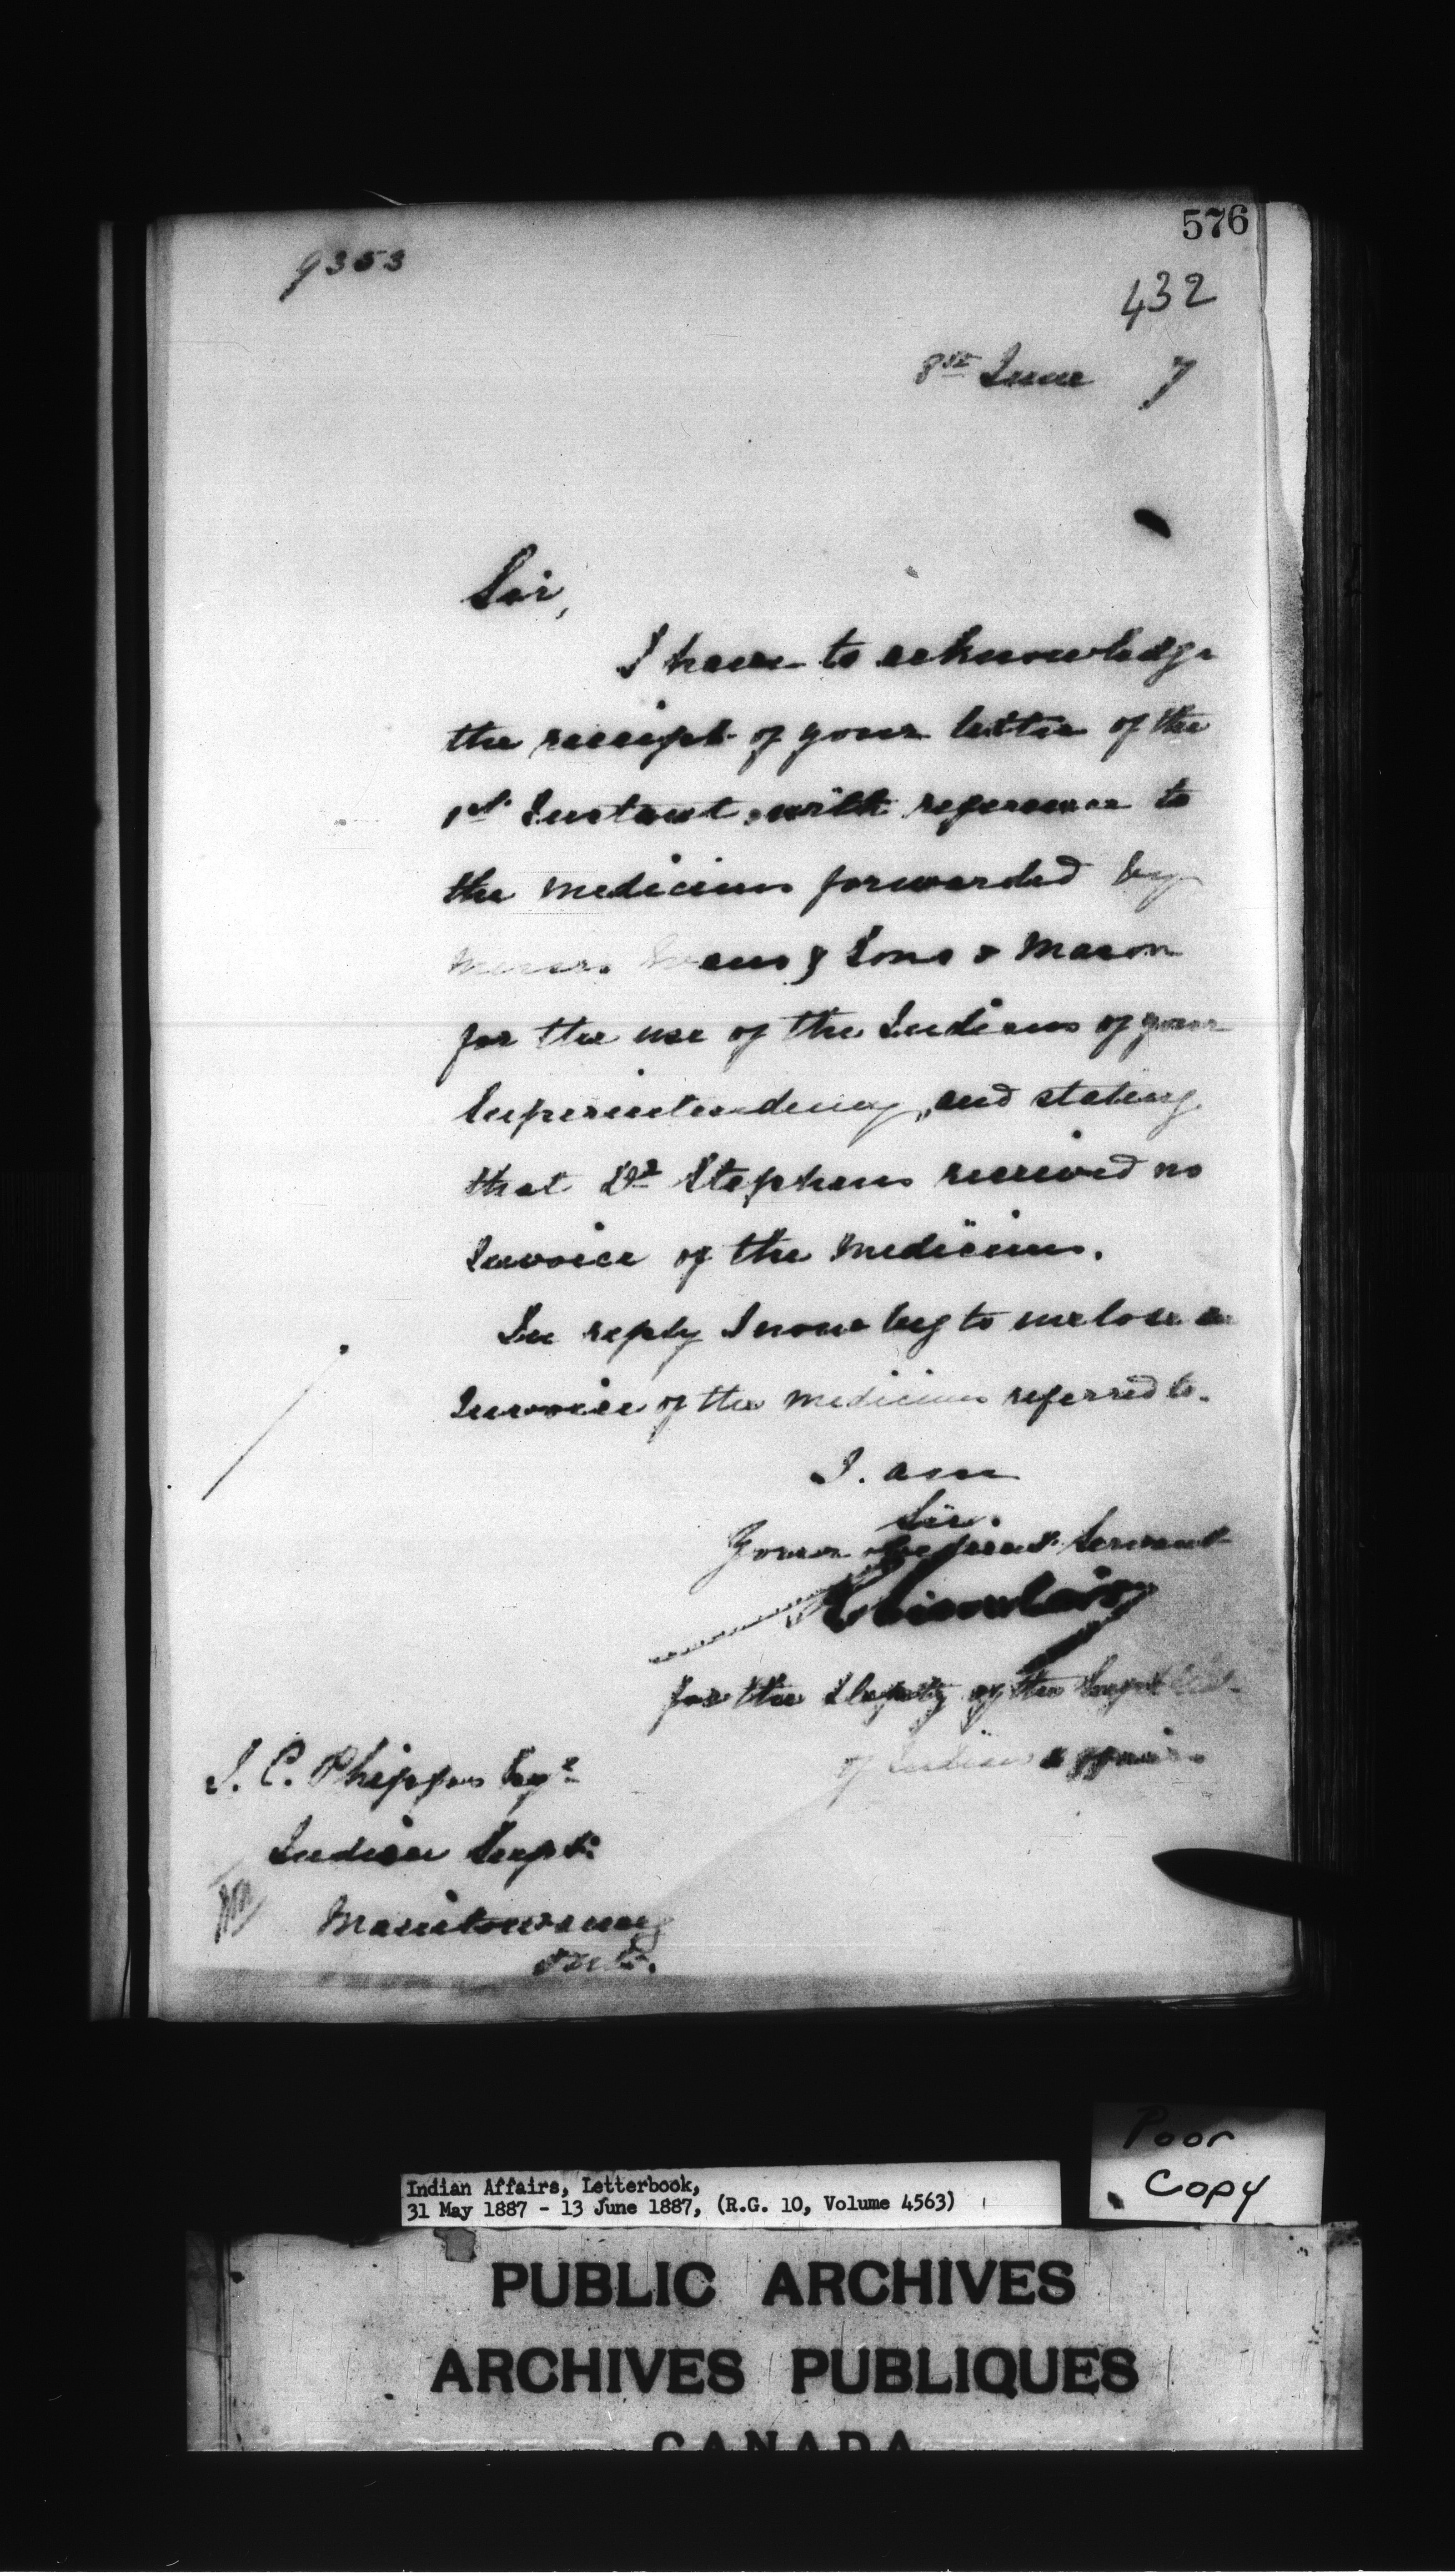 576
9353
432
8th June 7
Sir,
I have to acknowledge
the receipt of your letter of the
1st Instant, with reference to
the medicines forwarded by
Messrs Evans & Sons & Mason
for the use of the Indians of your
Superintendency, and stating
that Dr Stephens received no
Invoice of the medicines.
In reply I now beg to enclose an
Invoice of the medicines referred to.
I am
Sir.
Your obedient Servant
for the Deputy of the Supt
of Indian Affairs
J. C. Phipps Esqr
Indian Supt:
Manitowaning
Ont.
Poor
Copy
Indian Affairs, Letterbook,
31 May 1887 - 13 June 1887, (R.G. 10, Volume 4563)
PUBLIC ARCHIVES
ARCHIVES PUBLIQUES
CANADA